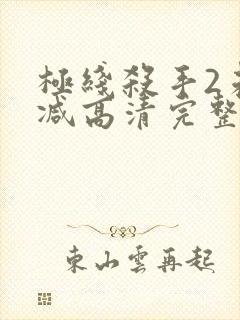 極綫殺手2
减高清完整
東山雲再起